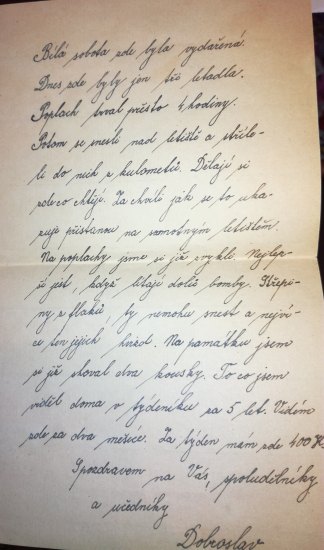 Bílá sobota zde byla vydařená.
Dnes zde byly jen tři letadla.
Poplach trval přesto 4 hodiny.
Potom se snesli nad letiště a stříle-
li do nich z kulometů. Dělají si
zde co chtějí. Za chvíli jak se to uka-
zuje přistanou na samotným letištěm.
Na poplachy jsme si již zvykli. Nejlep-
ší jest, když lítají dolů bomby. Střepi-
ny z flaků, ty nemohu snest a nejví-
ce ten jejich hvizd. Na památku jsem
si již shoval dva kousky. To co jsem
viděl doma v týdeníku za 5 let. Vidím
zde za dva měsíce. Za týden mám zde 400
S pozdravem na Vás, spoludělníky
a učedníky
Dobroslav